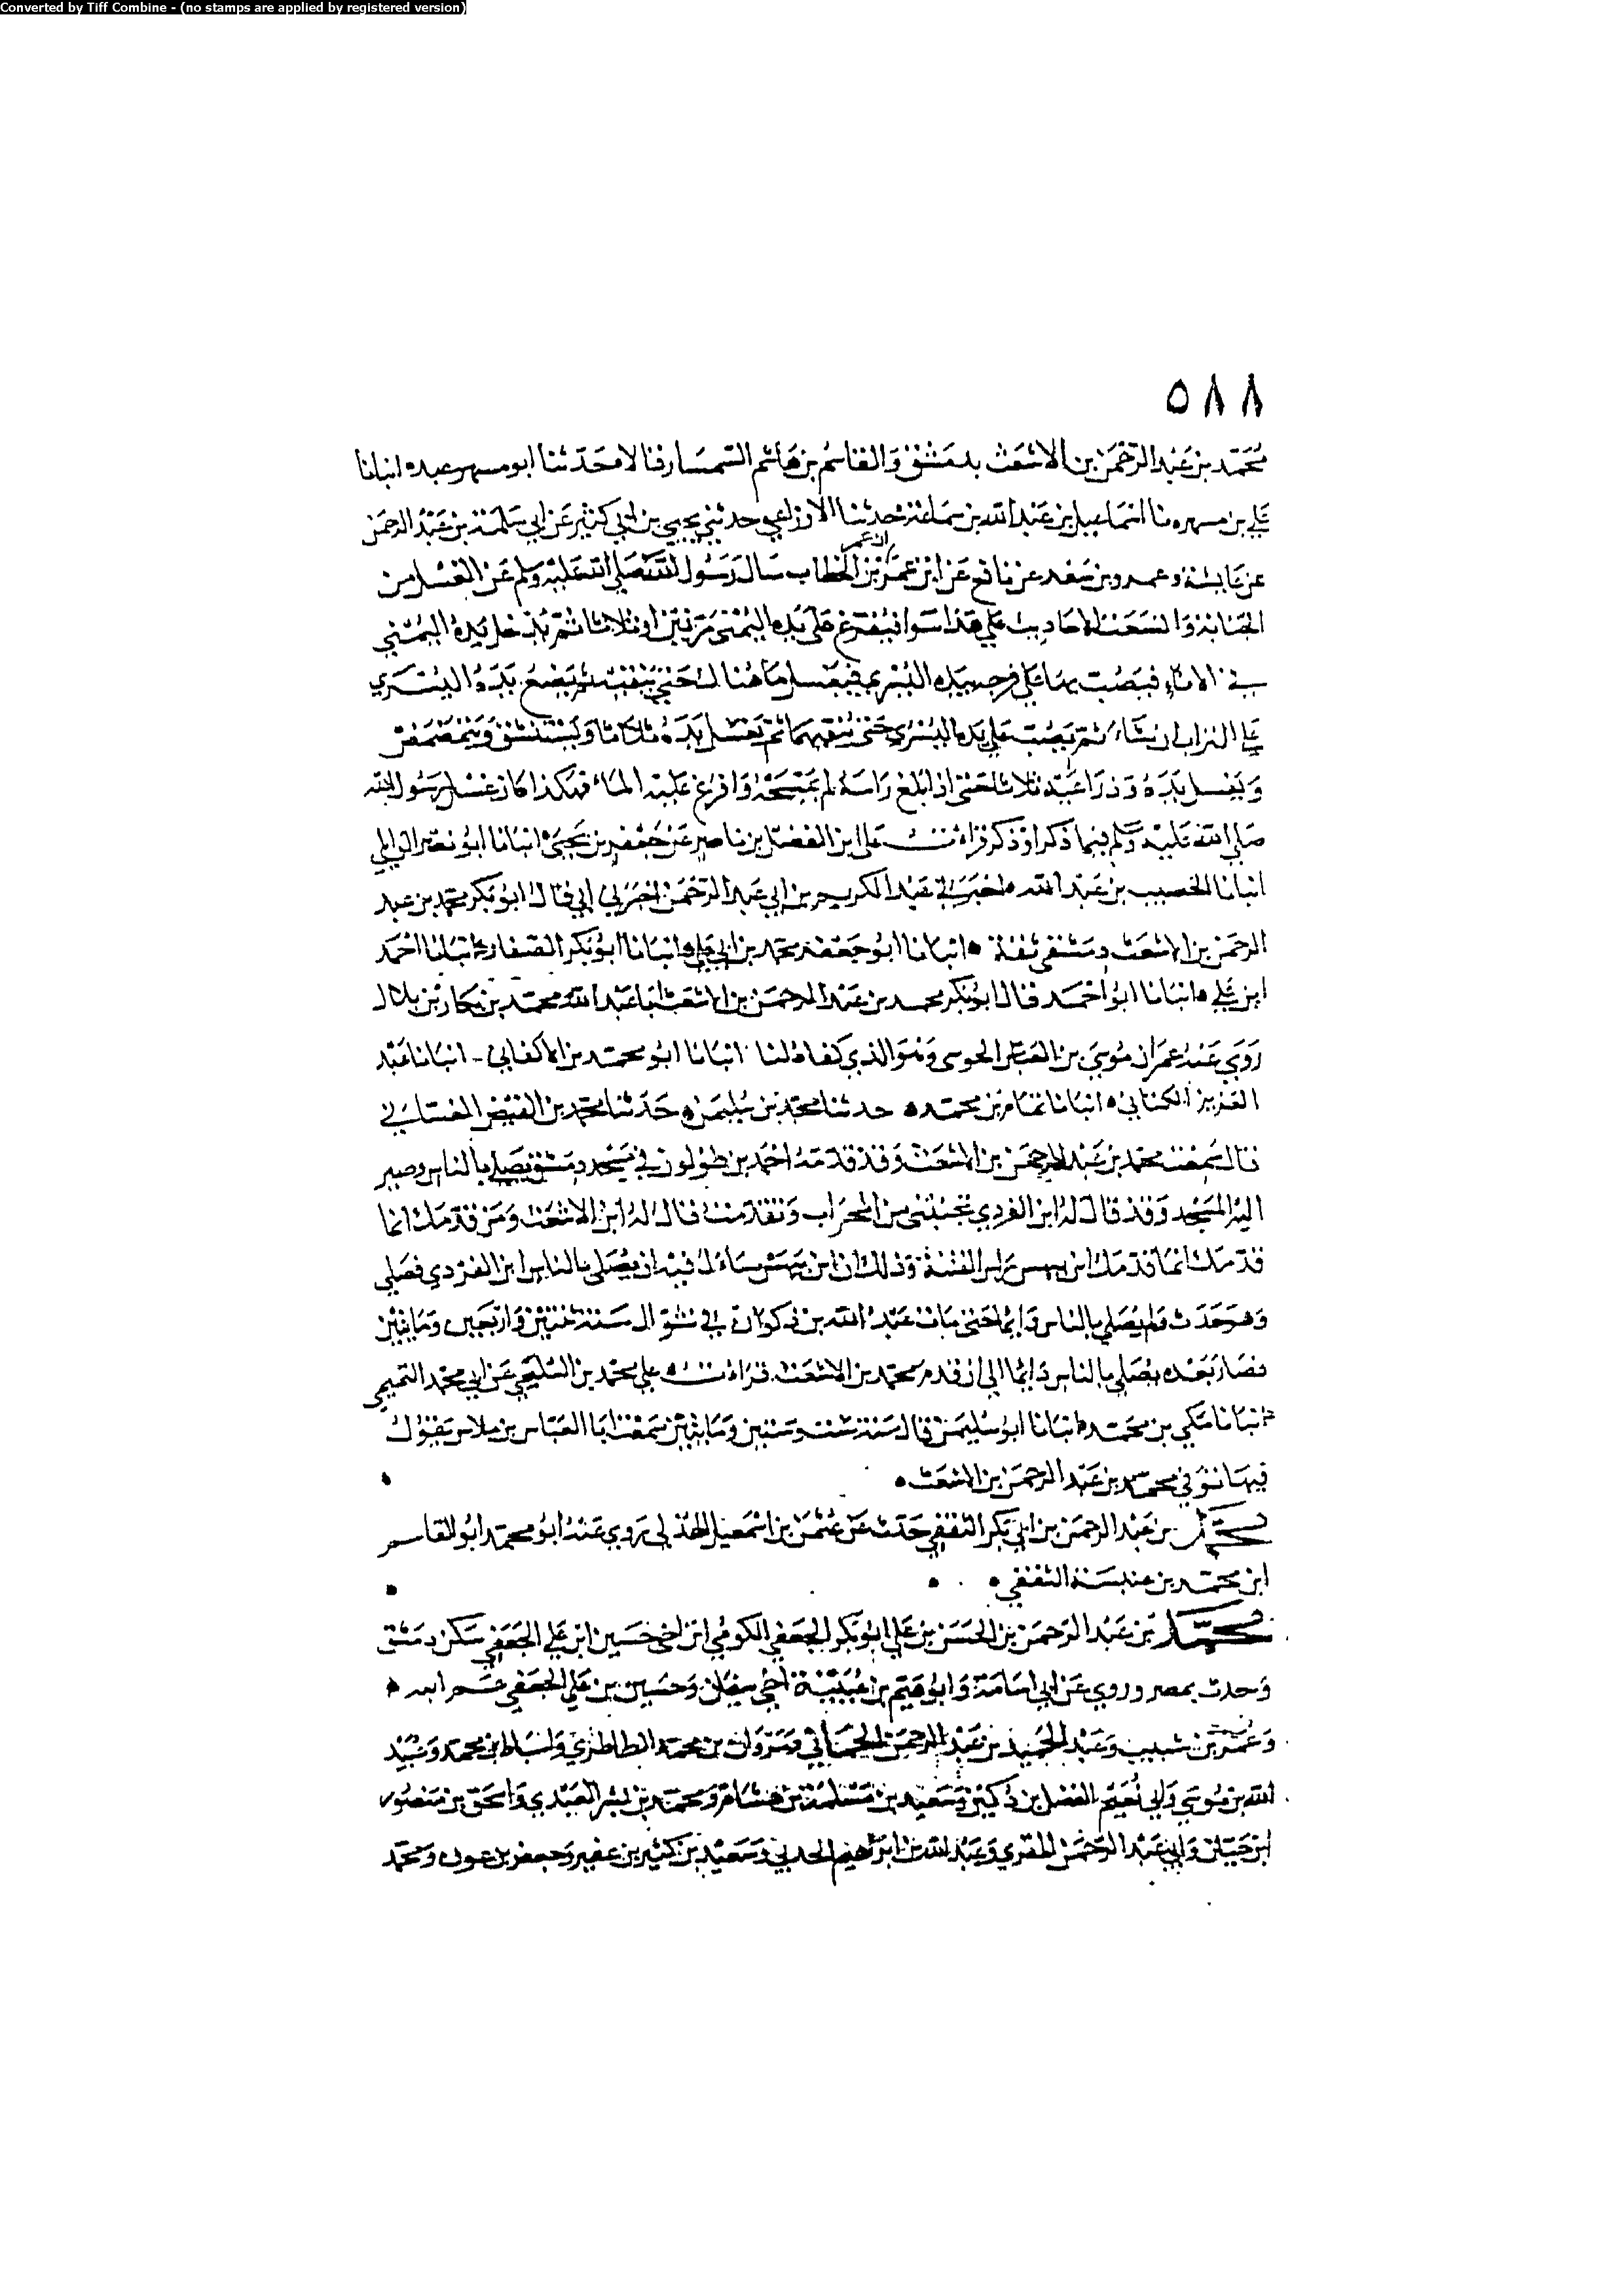 Converted by Tiff Combine - (no stamps are applied by registered version)
٥٨٨
محمد بن عبد الرحمن بن الاشعث بدمشق والقاسم بن هاشم السمسار قالا حدثنا ابو مسهر عبده انبانا
علي بن مسهر نا اسماعيل بن عبد الله بن سماعة حدثنا الاوزاعي حدثني يحيي بن ابي كثير عن ابي سلمة بن عبد الرحمن
عن عايشة وعمرو بن سعد عن نافع عن ابن عمر ان عمر بن الخطاب سال رسول الله صلي الله عليه وسلم عن الغسل من
الجنابة واتسعت الاحاديث علي هذا سوا فيفرغ علي يده اليمني مرتين او ثلاثا ثم يدخل يده اليمني
في الاناء فيصب بها علي فرجه بيده اليسري فيغسل ما هنالك حتي ينقيه ثم يضع يده اليسري
علي التراب ان شاء ثم يصب علي يده اليسري حتي ينقيها ثم يغسل يده ثلاثا ويستنشق ويتمضمض
ويغسل يده وذراعيه ثلاثا حتي اذا بلغ راسه لم يمسحه وافرغ عليه الماء فهكذا كان غسل رسول الله
صلي الله عليه وسلم فيما ذكر او ذكر قراءت علي ابن الفضل بن ناصر عن جعفر بن يحيي انبانا ابو نصر الوايلي
انبانا الخصيب بن عبد الله اخبرني عبد الكريم بن ابي عبد الرحمن اخبرني ابي قال ابو بكر محمد بن عبد
الرحمن بن الاشعث دمشقي ثقة انبانا ابو جعفر محمد بن ابي علي انبانا ابو بكر الصفار انبانا احمد
ابن علي انبانا ابو احمد قال ابو بكر محمد بن عبد الرحمن بن الاشعث ابا عبد الله محمد بن بكار بن بلال
روي عنه عمران موسي بن العباس الجوسى وهو الذي كناه لنا انبانا ابو محمد بن الاكفاني - انبانا عبد
العزيز الكتاني انبانا تمام بن محمد حدثنا محمد بن سليمن حدثنا محمد بن الفيض الغساني
قال سمعت محمد بن عبد الرحمن بن الاشعث وقد قدمه احمد بن طولون في مسجد دمشق يصلي بالناس وصير
اليه المسجد وقد قال له ابن الفردي نحيتني من المحراب وتقدمت قال له ابن الاشعث ومن قدمك انما
قدمك انما قدمك ابن بيهس راس الفتنة وذلك ان ابن بيهس ساءله فيه ان يصلي بالناس ابن الفردي فصلي
وهو حدث ولم يصلي بالناس دايما حتي مات عبد الله بن ذكوان في شوال سنة ثنتين واربعين ومايتين
فصار بعده يصلي بالناس دايما الي ان قدم محمد بن الاشعث قراءت علي محمد بن السلمي عن ابي محمد التميمي
انبانا مكي بن محمد انبانا ابو سليمن قال سنة ست وستين ومايتين سمعت ابا العباس بن ملاس يقول
فيها توفي محمد بن عبد الرحمن بن الاشعث
محمد بن عبد الرحمن بن ابي بكر الثقفي حدث عن عثمن بن اسمعيل الهذلي روي عنه ابو محمد ابو القاسم
ابن محمد بن عنبسة الثقفي
محمد بن عبد الرحمن بن الحسن بن علي ابو بكر الجعفي الكوفي ابن اخي حسين ابن علي الجعفي سكن دمشق
وحدث بمصر وروي عن ابي اسامة وابرهيم بن عيينة اخي سفين وحسين بن علي الجعفي عم ابيه
وعمر بن شبيب وعبد الحميد بن عبد الرحمن الحماني ومروان بن محمد الطاطري واسباط بن محمد وعبيد
الله بن موسي وابي نعيم الفضل بن دكين وسعيد بن مسلمة بن هشام ومحمد بن بشر العبدي واسحق بن منصور
ابن حيان وابي عبد الرحمن المقري وعبد الله بن ابرهيم المدني وسعيد بن كثير بن عفير وجعفر بن عون ومحمد